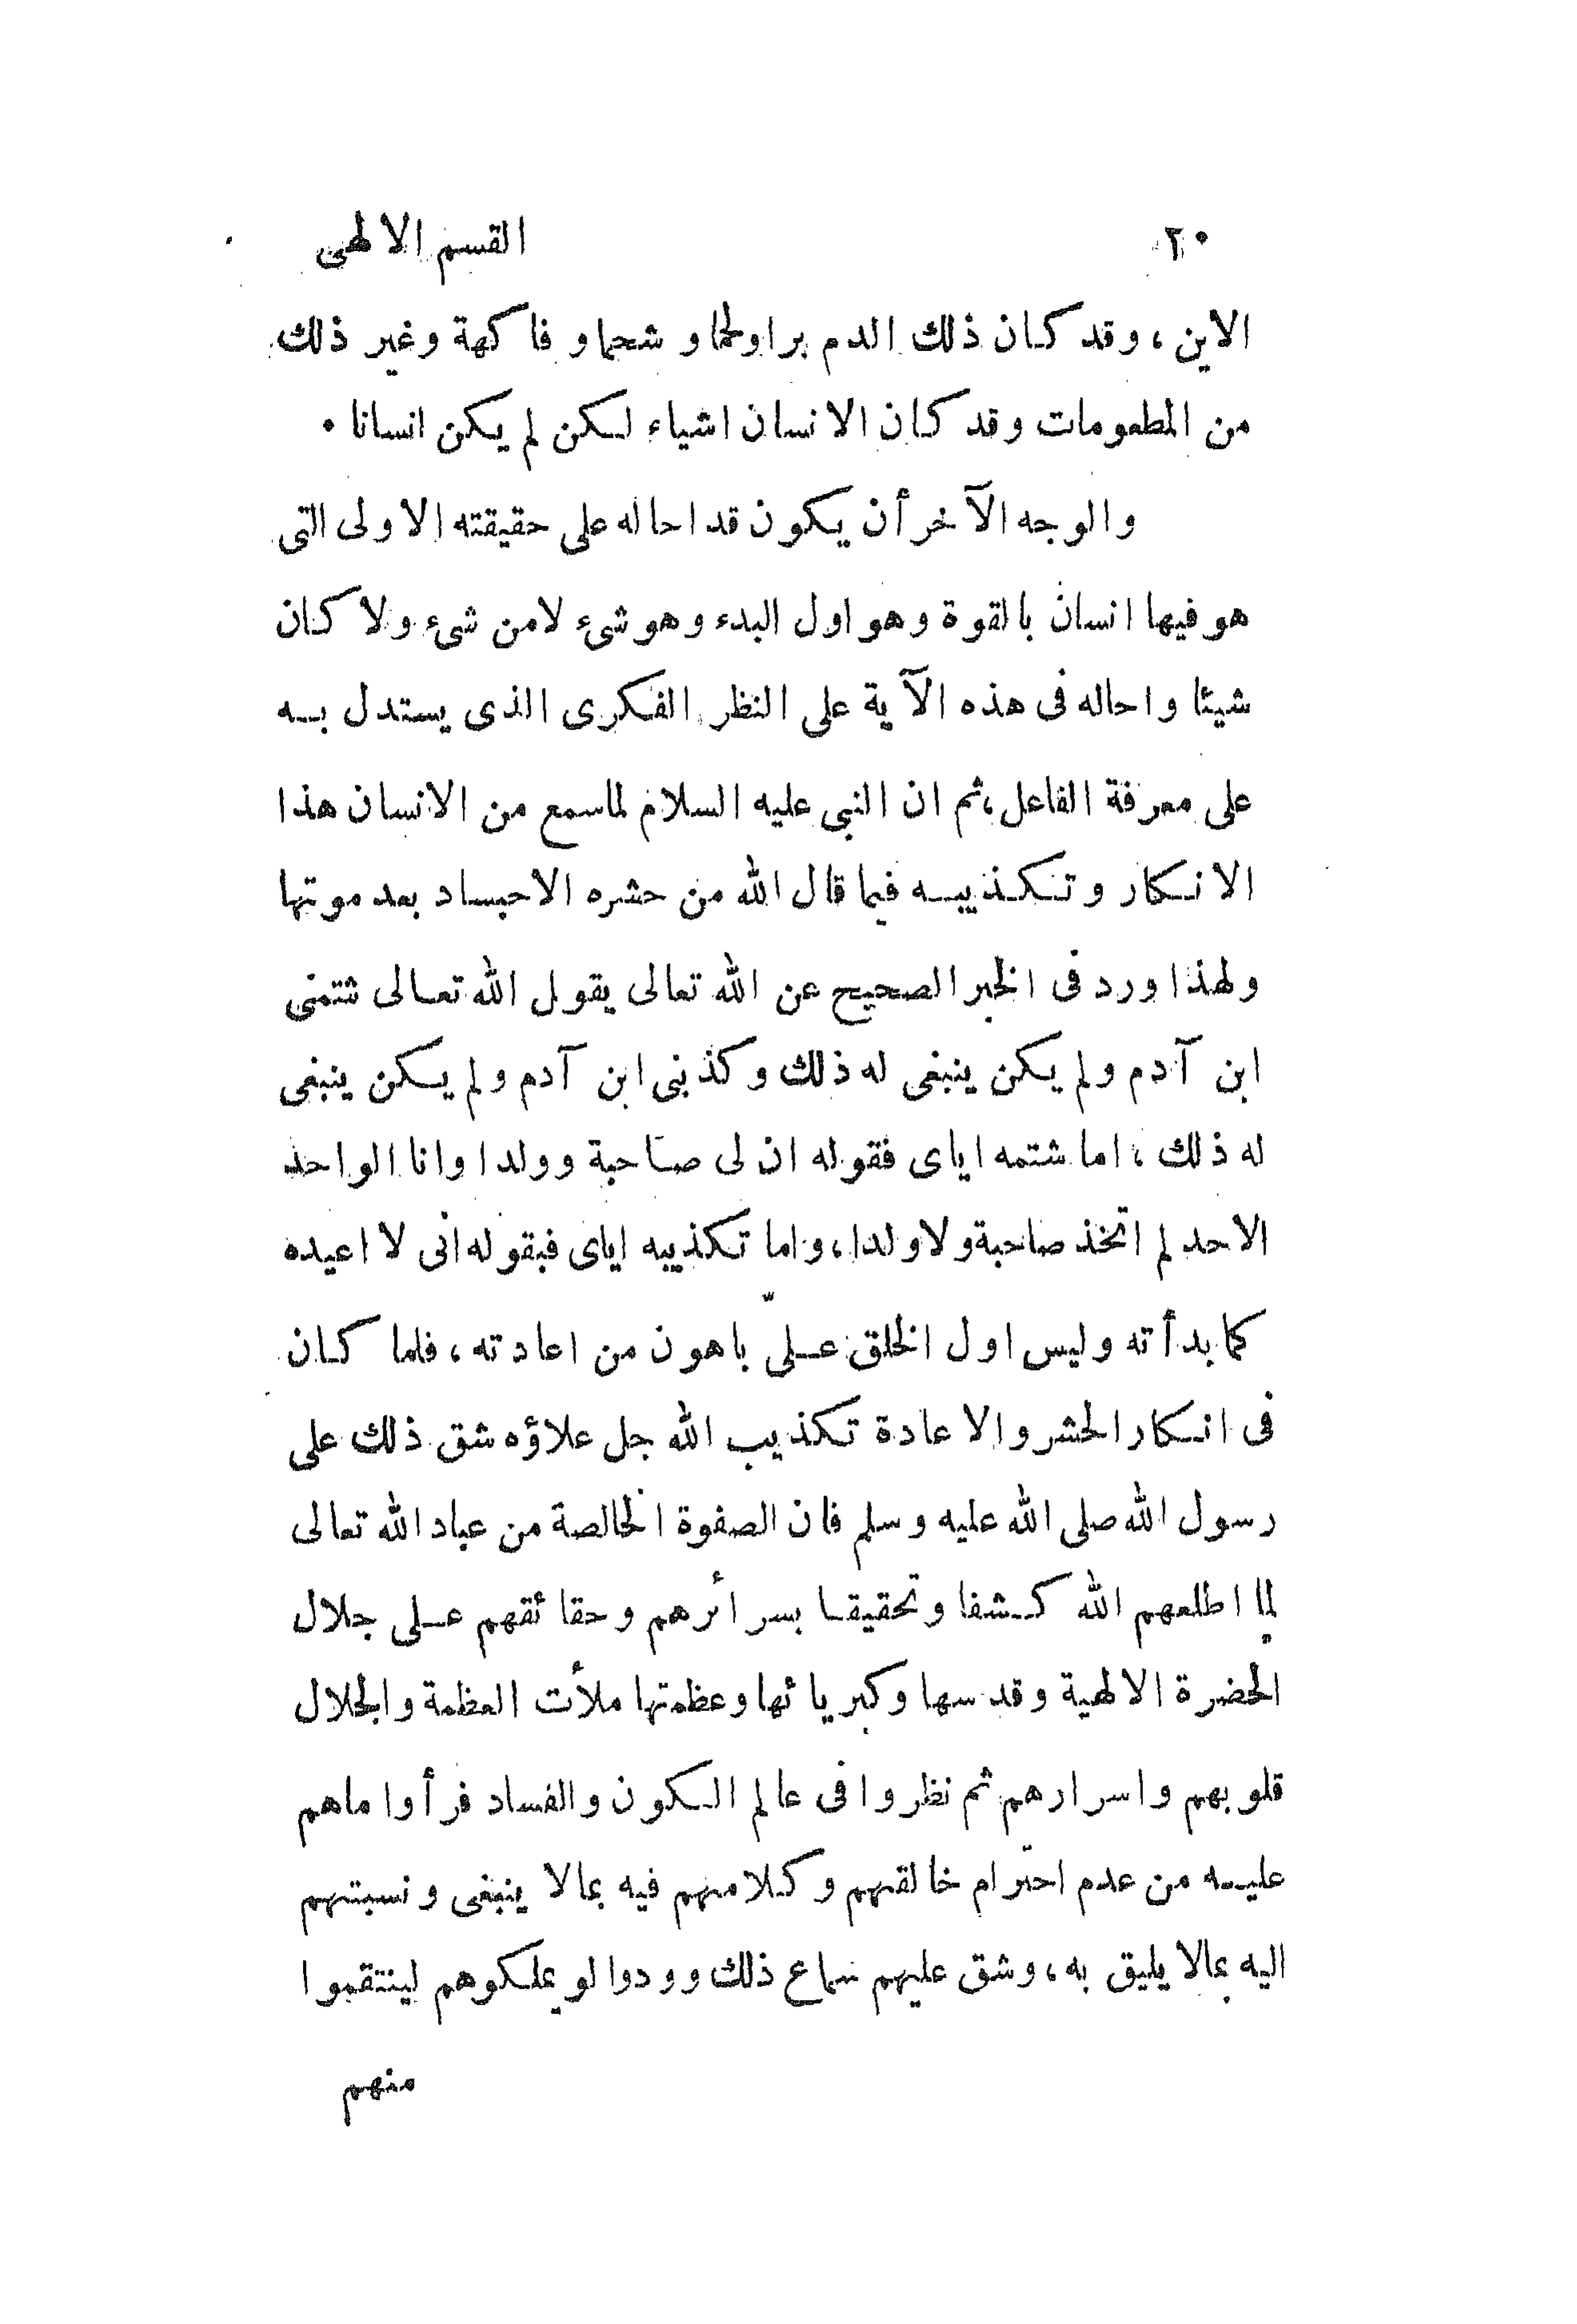 ٢٠ القسم الالهى
الاين ، وقد كان ذلك الدم برا ولحما و شحما و فاكهة وغير ذلك
من المطعومات وقد كان الانسان اشياء لكن لم يكن انسانا ٠
والوجه الآخر أن يكون قد احاله على حقيقته الاولى التى
هو فيها انسان بالقوة وهو اول البدء وهو شىء لامن شىء ولا كان
شيئا واحاله فى هذه الآية على النظر الفكرى الذى يستدل به
على معرفة الفاعل ، ثم ان النبى عليه السلام لما سمع من الانسان هذا
الانكار وتكذيبه فيما قال الله من حشره الاجساد بعد موتها
ولهذا ورد فى الخبر الصحيح عن الله تعالى يقول الله تعالى شتمنى
ابن آدم ولم يكن ينبغى له ذلك وكذبنى ابن آدم ولم يكن ينبغى
له ذلك ، اما شتمه اياى فقوله ان لى صاحبة وولدا وانا الواحد
الاحد لم اتخذ صاحبة ولا ولدا ، واما تكذيبه اياى فبقوله انى لا اعيده
كما بدأته وليس اول الخلق علىّ باهون من اعادته ، فلما كان
فى انكار الحشر والاعادة تكذيب الله جل علاؤه شق ذلك على
رسول الله صلى الله عليه وسلم فان الصفوة الخالصة من عباد الله تعالى
لما اطلعهم الله كشفا وتحقيقا بسرائرهم وحقائقهم على جلال
الحضرة الالهية وقدسها وكبريائها وعظمتها ملأت العظمة والجلال
قلوبهم واسرارهم ثم نظروا فى عالم الكون والفساد فرأوا ماهم
عليه من عدم احترام خالقهم وكلامهم فيه بمالا ينبغى ونسبتهم
اليه بمالا يليق به ، وشق عليهم سماع ذلك وودوا لو يملكوهم لينتقموا
منهم